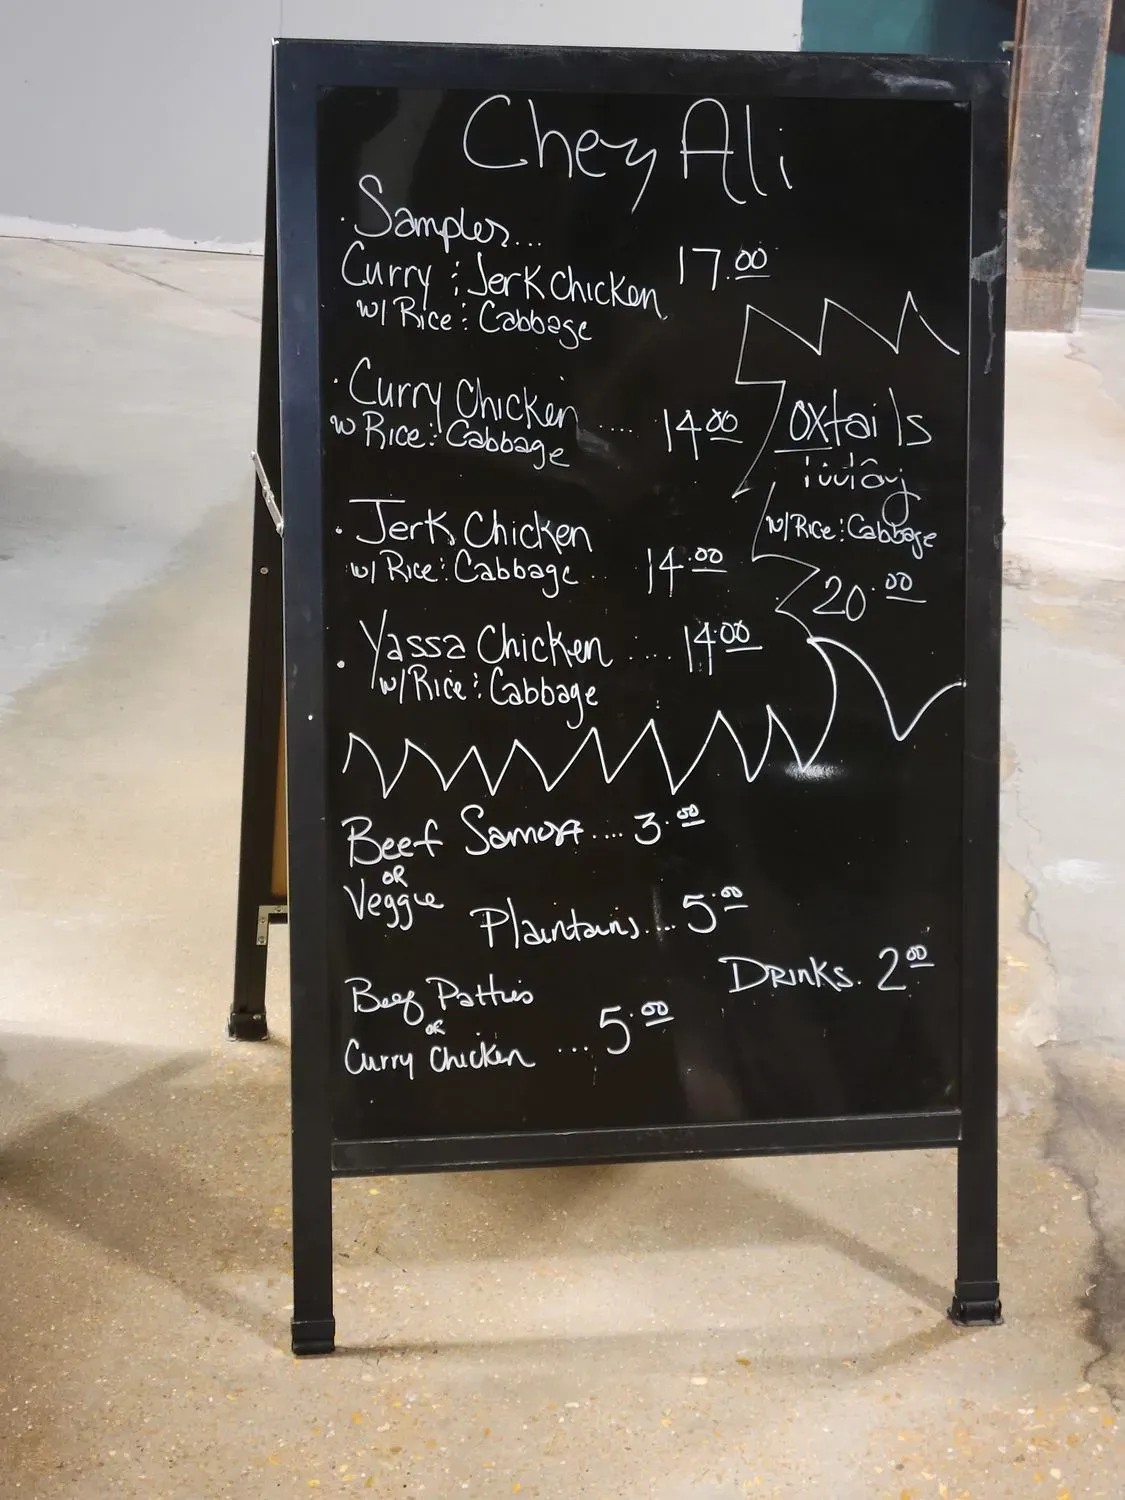 Chez Ali
· Sampler...
Curry & Jerk Chicken 17.00
w/ Rice & Cabbage
· Curry Chicken .... 14.00
w Rice & Cabbage
· Jerk Chicken
w/ Rice & Cabbage .. 14.00
· Yassa Chicken .... 14.00
w/ Rice & Cabbage
Oxtails
Today
w/ Rice & Cabbage
20.00
Beef Samosa .... 3.00
OR
Veggie
Plaintains.... 5.00
Drinks. 2.00
Beef Patties
OR
Curry Chicken ... 5.00